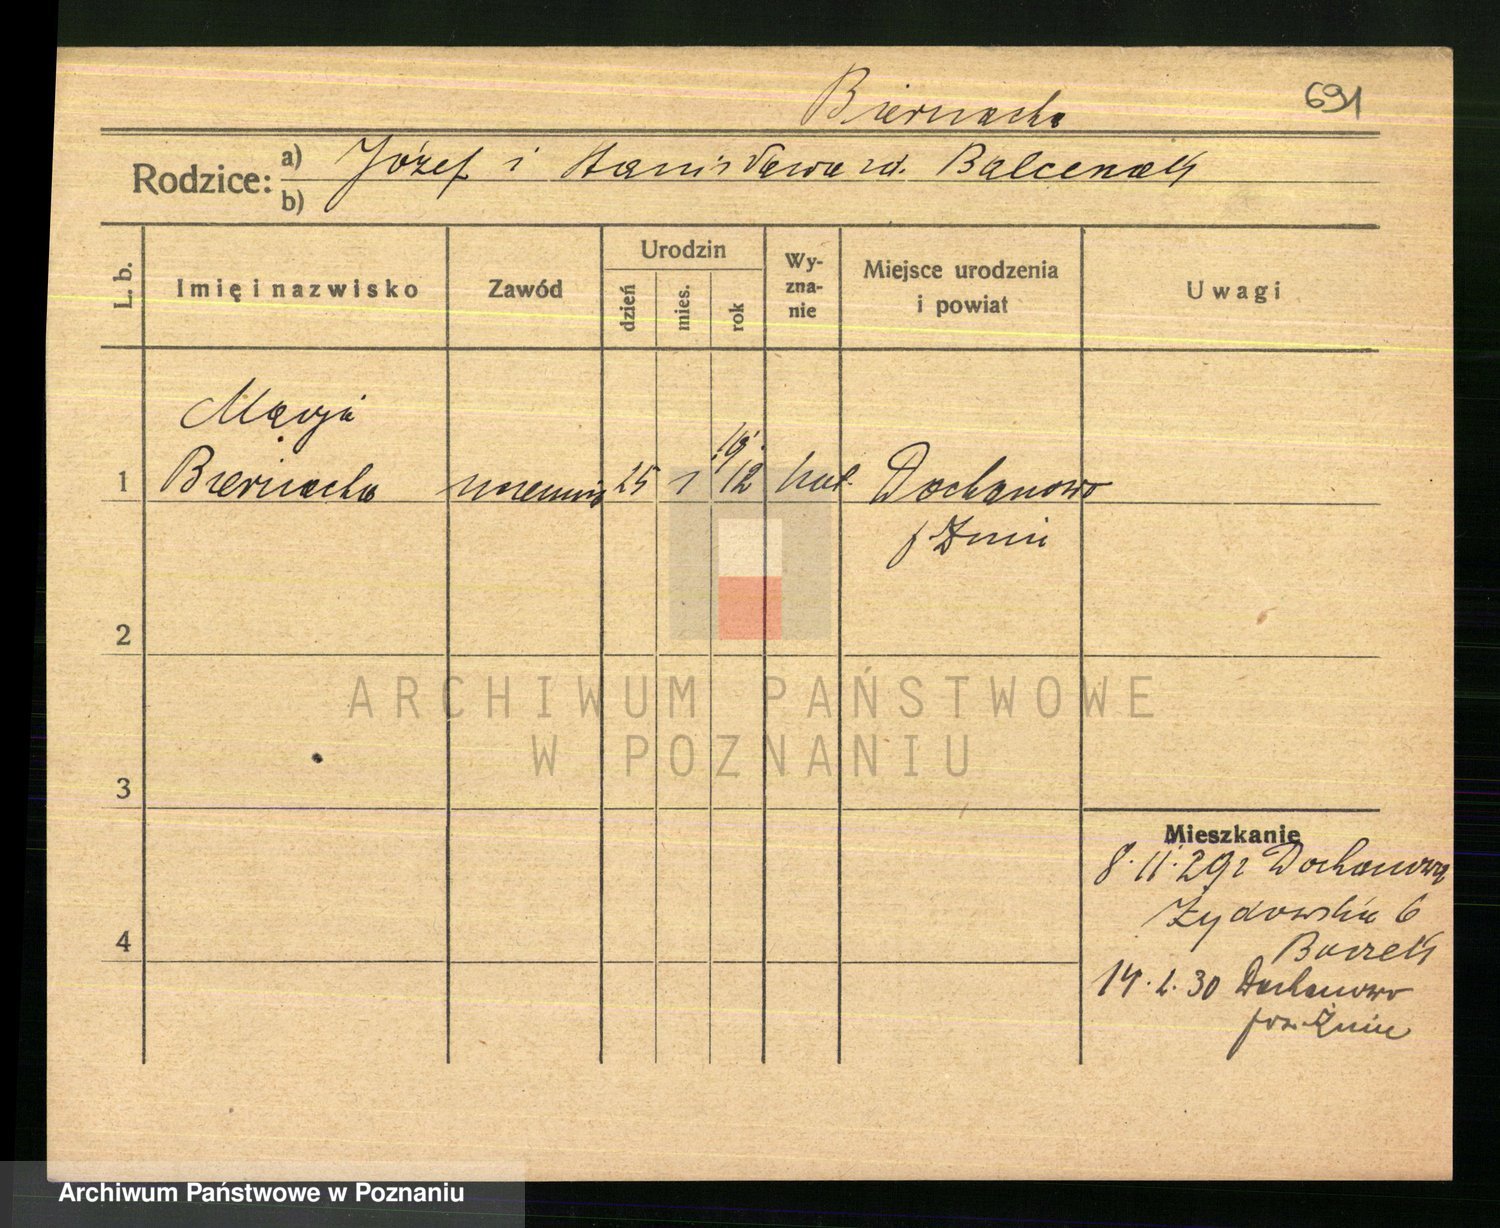 Biernacka
691
Rodzice:
a) Józef i Stanisława zd. Balcerzak
b)
L. b.
Imię i nazwisko
Zawód
Urodzin
dzień
mies.
rok
Wy-
zna-
nie
Miejsce urodzenia
i powiat
Uwagi
Marja
1 Biernacka uczennica 25 1 19 12 kat. Dochanowo
p. Żnin
2
3
4
ARCHIWUM PAŃSTWOWE
W POZNANIU
Mieszkanie
8.11.29 z Dochanowa
Żydowska 6
14.2.30 Dochanowo
pow. Żnin
Archiwum Państwowe w Poznaniu